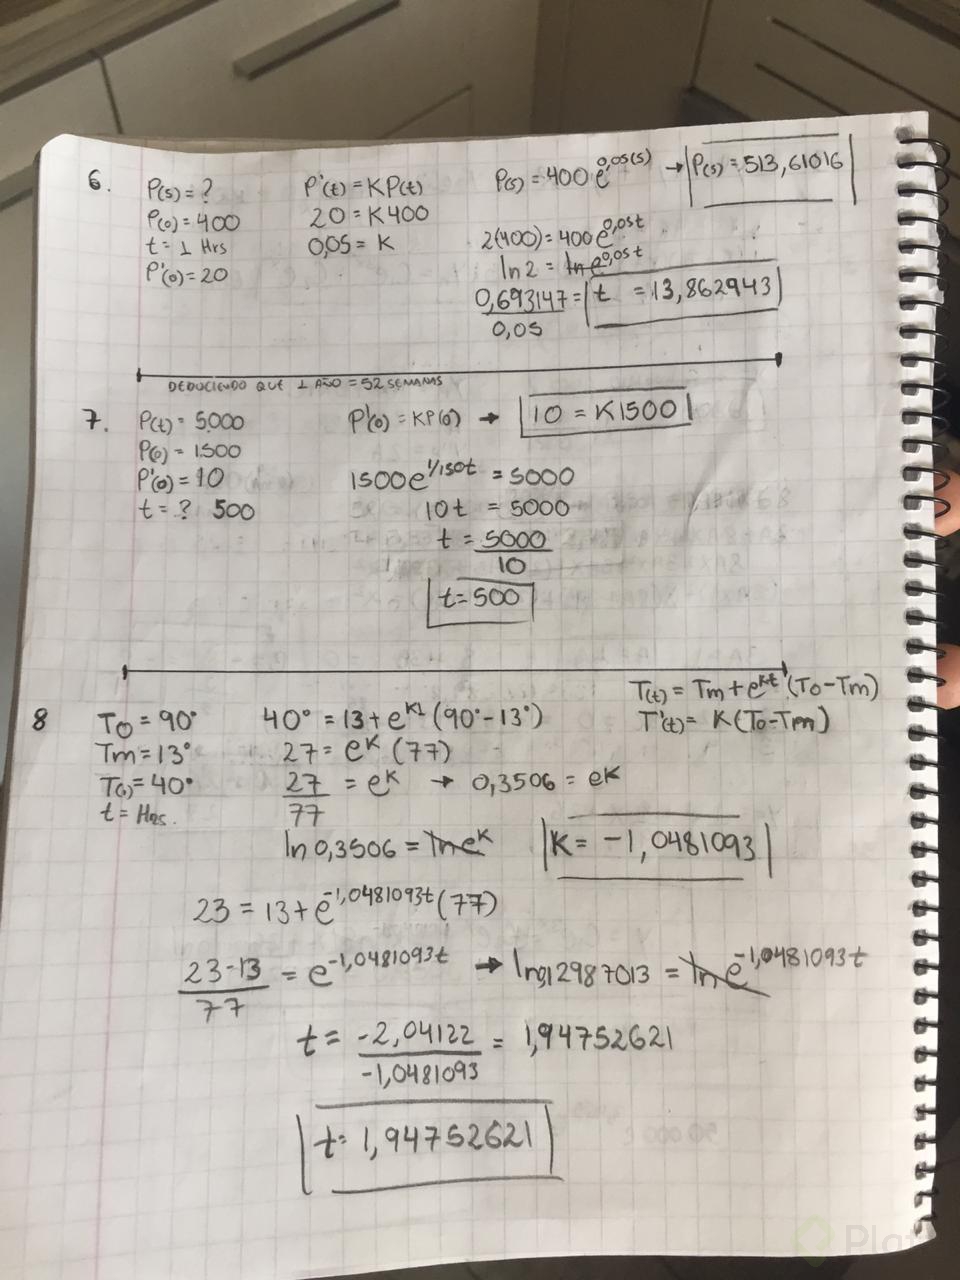 6.
P(5) = ?
P(0) = 400
t = 1 Hrs
P'(0) = 20
P'(t) = KP(t)
20 = K400
0,05 = K
P(5) = 400 e^0,05(5) → P(5) = 513,61016
2(400) = 400 e^0,05t
ln 2 = ln e^0,05t
0,693147 = t = 13,862943
0,05
DEDUCIENDO QUE 1 AÑO = 52 SEMANAS
7.
P(t) = 5,000
P(0) = 1,500
P'(0) = 10
t = ? 500
P'(0) = KP(0) → 10 = K1500
1500e^1/150t = 5000
10t = 5000
t = 5000
10
t = 500
T(t) = Tm + e^kt (To - Tm)
T'(t) = K(To - Tm)
8
To = 90°
Tm = 13°
T(1) = 40°
t = Hrs.
40° = 13 + e^K1 (90° - 13°)
27 = e^K (77)
27 = e^K → 0,3506 = e^K
77
ln 0,3506 = ln e^K
K = -1,0481093
23 = 13 + e^-1,0481093t (77)
23-13 = e^-1,0481093t → ln 0,12987013 = ln e^-1,0481093t
77
t = -2,04122 = 1,94752621
-1,0481093
t = 1,94752621